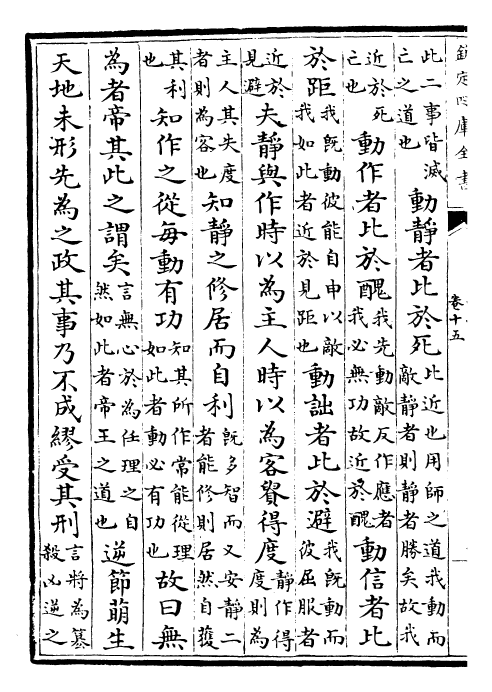 欽定四庫全書 卷十五
此二事皆滅亡之道也動靜者比於死比近也用師之道我動而敵靜者則靜者勝矣故我
近於死亡也動作者比於醜我先動敵反作應者我必無功故近於醜動信者比
於距我既動彼能自申以敵我如此者近於見距也動詘者比於避我既動而彼屈服者
近於見避夫靜與作時以為主人時以為客貴得度靜作得度則為
主人其失度者則為客也知靜之修居而自利既多智而又安靜二者能修則居然自獲
其利也知作之從每動有功知其所作常能從理如此者動必有功也故曰無
為者帝其此之謂矣言無心於為任理之自然如此者帝王之道也逆節萌生
天地未形先為之政其事乃不成繆受其刑言將為篡殺凶逆之